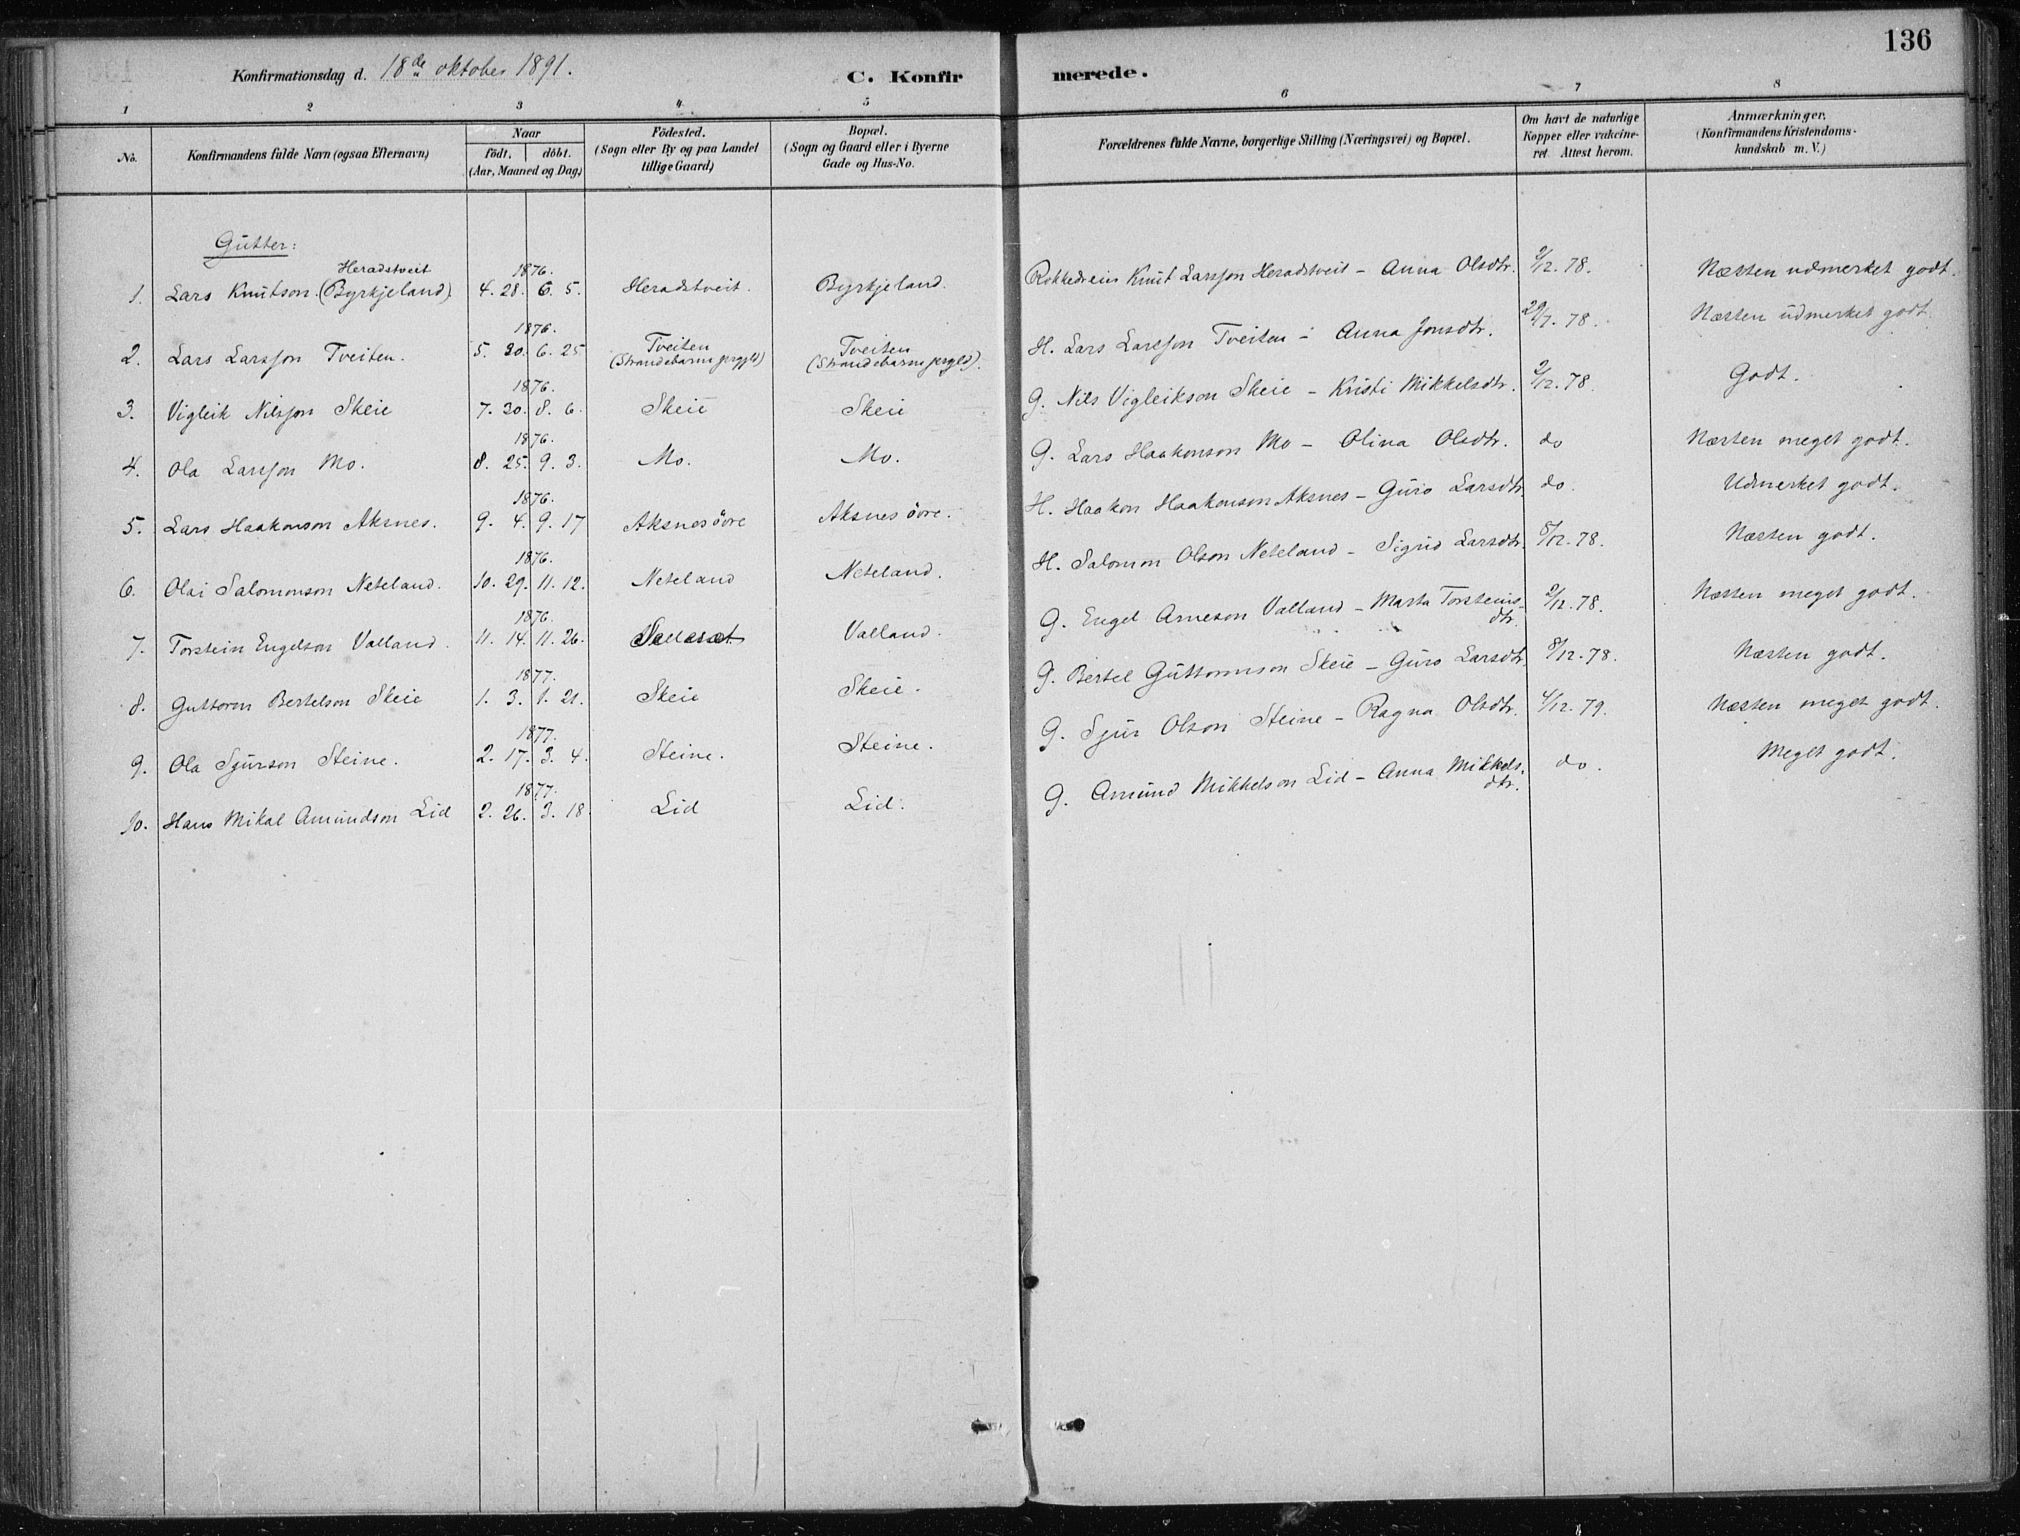 136
Konfirmationsdag d. 18de oktober 1891.
C. Konfirmerede.
1 2 3 4 5 6 7 8
No. Konfirmandens fulde Navn (ogsaa Efternavn) Naar födt. döbt. (Aar, Maaned og Dag) Födested. (Sogn eller By og paa Landet tillige Gaard) Bopæl. (Sogn og Gaard eller i Byerne Gade og Hus-No. Forældrenes fulde Navne, borgerlige Stilling (Næringsvei) og Bopæl. Om havt de naturlige Kopper eller vakcineret. Attest herom. Anmærkninger. (Konfirmandens Kristendomskundskab m. V.)
Gutter:
Heradstveit 1876.
1. Lars Knutson (Byrkjeland) 4. 28. 6. 5. Heradstveit. Byrkjeland. Knut Larsson Heradstveit - Anna Olsdtr. 2/12. 78. Næsten udmerket godt.
1876.
2. Lars Larsson Tveiten. 5. 30. 6. 25 Tveiten (Strandebarms prgjld) Tveiten (Strandebarms prgjld). H. Lars Larsson Tveiten - Anna Jonsdtr. 29/7. 78. Næsten udmerket godt.
1876.
3. Vigleik Nilsson Skeie 7. 30. 8. 6. Skeie Skeie G. Nils Vigleikson Skeie - Kristi Mikkelsdtr. 2/12. 78. Godt.
1876.
4. Ola Larsson Mo. 8. 25. 9. 3. Mo. Mo. G. Lars Haakonson Mo - Olina Olsdtr. do Næsten meget godt.
1876.
5. Lars Haakonson Aksnes. 9. 4. 9. 17 Aksnes övre Aksnes övre. H. Haakon Haakonson Aksnes - Guro Larsdtr. do. Udmerket godt.
1876.
6. Olai Salomonson Neteland. 10. 29. 11. 12. Neteland Neteland. H. Salomon Olson Neteland - Sigrid Larsdtr. 8/12. 78. Næsten godt.
1876.
7. Torstein Engelson Valland. 11. 14. 11. 26. Valland. G. Engel Arneson Valland - Marta Torsteinsdtr. 2/12. 78. Næsten meget godt.
1877.
8. Guttorm Bertelson Skeie 1. 3. 1. 21. Skeie Skeie. G. Bertel Guttormson Skeie - Guro Larsdtr. 8/12. 78. Næsten godt.
1877.
9. Ola Sjurson Steine. 2. 17. 3. 4. Steine. Steine. G. Sjur Olson Steine - Ragna Olsdtr. 4/12. 79. Næsten meget godt.
1877.
10. Hans Mikal Amundson Lid 2. 26. 3. 18. Lid Lid. G. Amund Mikkelson Lid - Anna Mikkelsdtr. do. Meget godt.